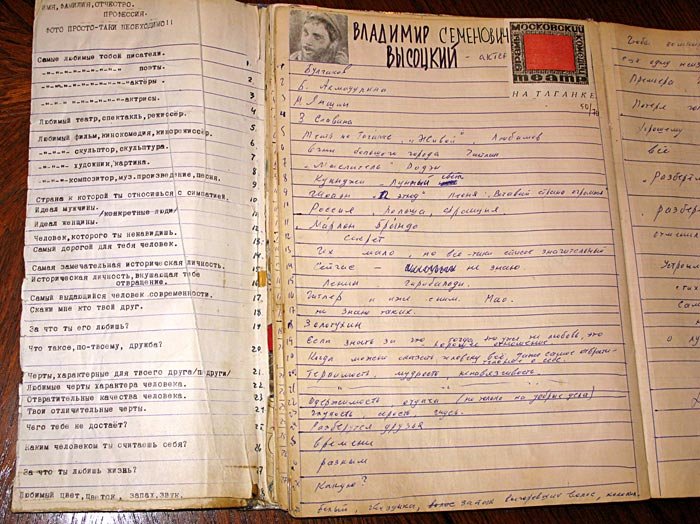 ИМЯ, ФАМИЛИЯ, ОТЧЕСТВО.
ПРОФЕССИЯ.
ФОТО ПРОСТО-ТАКИ НЕОБХОДИМО!!
Самые любимые тобой писатели. 1.
-"-"-"-"-"-"-"- поэты. 2.
-"-"-"-"-"-"-"- актёры. 3.
-"-"-"-"-"-"-"- актрисы. 4.
Любимый театр, спектакль, режиссёр. 5
Любимый фильм, кинокомедия, кинорежиссёр. 6
-"-"- скульптор, скульптура. 7
-"-"- художник, картина. 8
-"-"-композитор, муз.произведение, песня. 9
Страна к которой ты относишься с симпатией. 10
Идеал мужчины. 11
/конкретные люди/
Идеал женщины. 12
Человек, которого ты ненавидишь. 13
Самый дорогой для тебя человек. 14
Самая замечательная историческая личность. 15
Историческая личность, внушающая тебе
отвращение. 16
Самый выдающийся человек современности. 17
Скажи мне кто твой друг. 18
За что ты его любишь? 19
Что такое, по-твоему, дружба? 20
Черты, характерные для твоего друга/подруги/ 21
Любимые черты характера человека. 22
Отвратительные качества человека. 23
Твои отличительные черты. 24
Чего тебе не достаёт? 25
Каким человеком ты считаешь себя? 26
За что ты любишь жизнь? 27
Любимый цвет, цветок, запах, звук.
ВЛАДИМИР СЕМЕНОВИЧ
ВЫСОЦКИЙ - актёр
МОСКОВСКИЙ
ТЕАТР
НА ТАГАНКЕ
1 Булгаков
2 Б. Ахмадулина
3 М. Яншин
4 З. Славина
5 Театр на Таганке, "Живой", Любимов
6 Огни большого города Чаплин
7 "Мыслитель" Роден
8 Куинджи "Лунный свет"
9 Шопен 12 этюд Песня "Вставай страна огромная"
10 Россия, Польша, Франция
11 Марлон Брандо
12 Секрет
13 Их мало - но все-таки список значительный
14 Сейчас - не знаю
15 Ленин Гарибальди.
16 Гитлер и иже с ним. Мао.
17 не знаю таких.
18 Золотухин
19 Если знать за что, тогда это уже не любовь, это
хорошее отношение.
20 Когда можно сказать человеку всё, даже самое отврати-
тельное о себе.
21 Терпимость, мудрость, ненавязчивость.
22 Одержимость, отдача (но только на добрые дела)
23 Глупость, серость
24 Разберутся друзья
25 времени
26 разным
27 Какую?